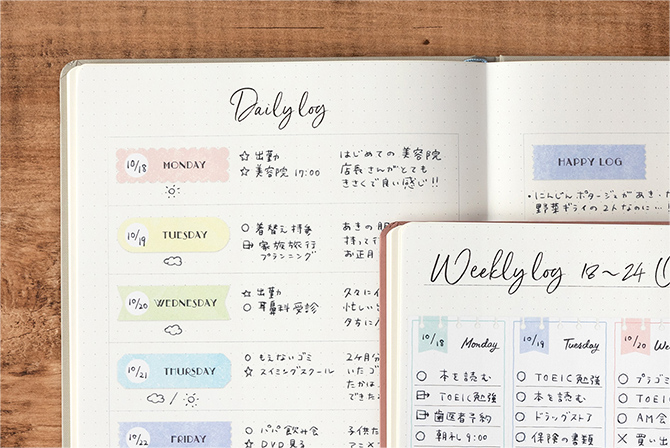 Daily log
10/18 MONDAY
☆ 出勤
☆ 美容院 17:00
はじめての 美容院
店長さんがとても
きさくで良い感じ!!
10/19 TUESDAY
○ 着替え持参
家族旅行
プランニング
あきの服
持って行
お正月
10/20 WEDNESDAY
☆ 出勤
○ 耳鼻科受診
久々に
忙しい
夕方に
10/21 THURSDAY
○ もえないゴミ
☆ スイミングスクール
2ヶ月分
いたゴ
たかは
できた
10/22 FRIDAY
○ パパ飲み会
☆ DVD見る
子供た
アニメ
HAPPY LOG
・にんじんポタージュがあき
野菜ギライの2人なのに…!
Weekly log 18~24 (
10/18 Monday
○ 本を読む
TOEIC勉強
歯医者予約
○ 朝礼 9:00
10/19 Tuesday
○ TOEIC勉強
○ 本を読む
○ ドラッグストア
○ 保険の書類
10/20 We
○ プラゴミ
○ TO
○ AM会
× 買い出